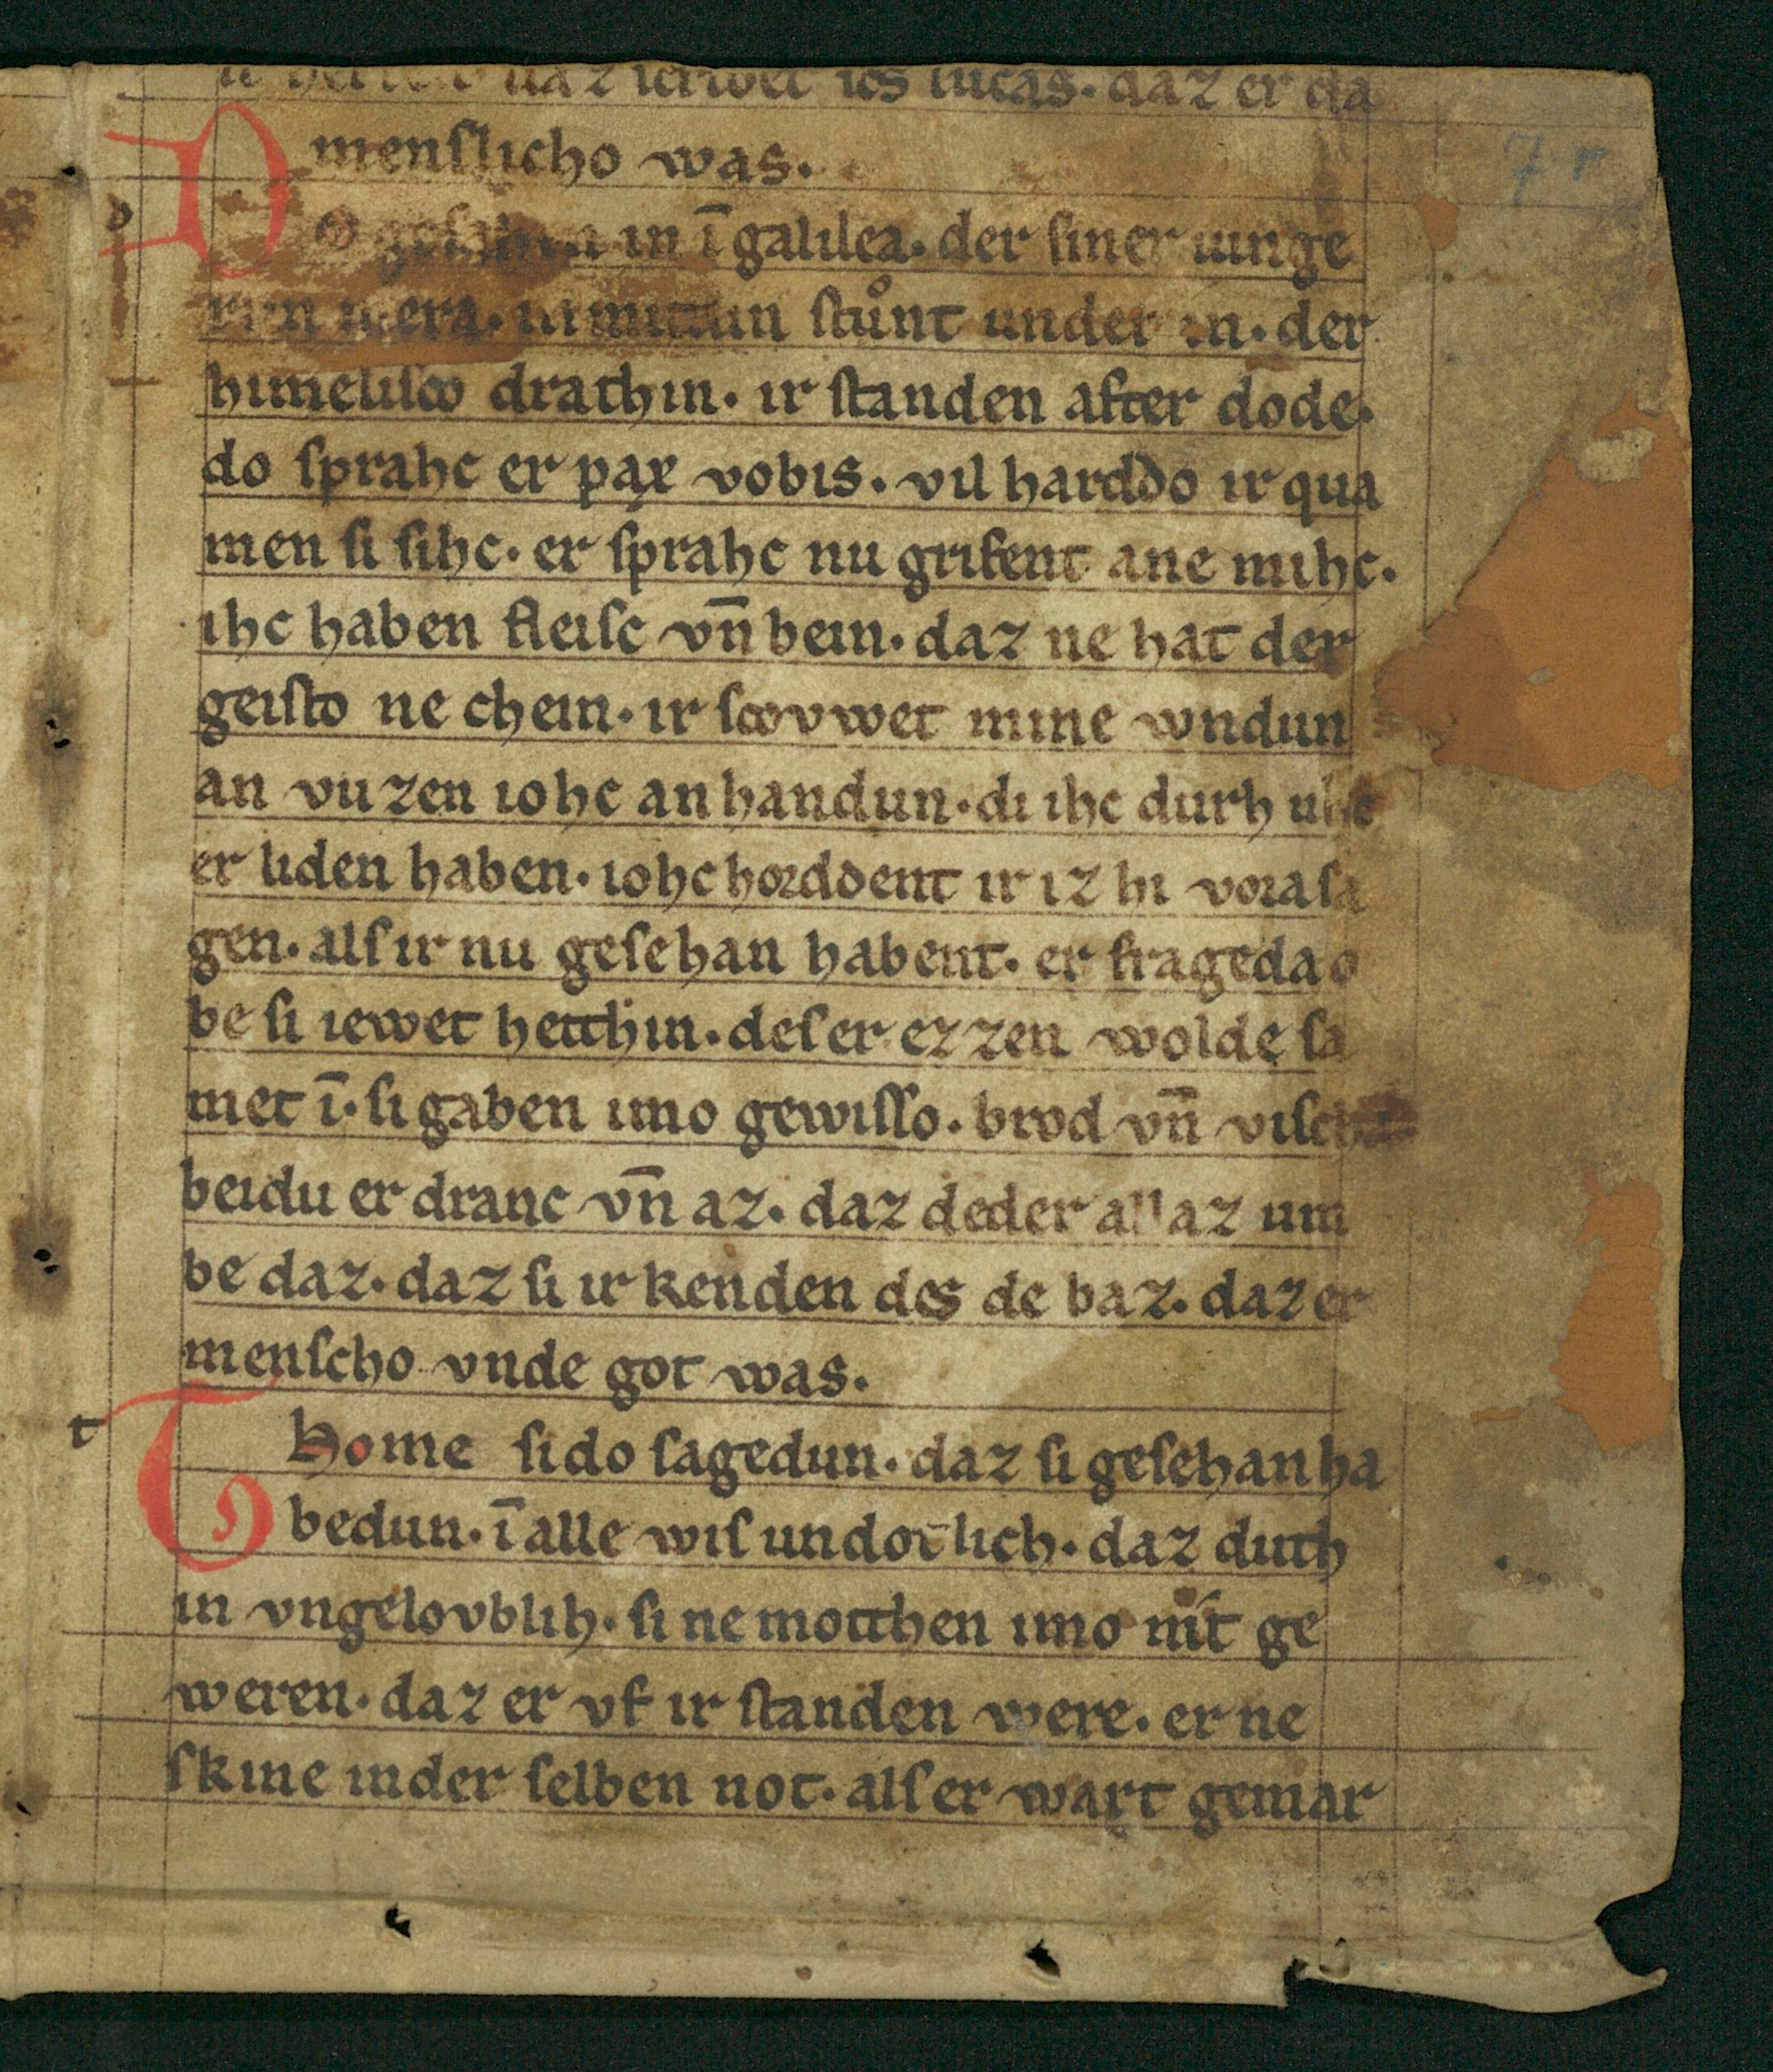 daz ier wel ies lucas. daz er da
menslicho was.
D o in ī galilea. der siner iunge
stůnt under in. der
himelisco drathin. ir standen after dode.
do sprahc er pax vobis. vil harddo ir qua
men si sihc. er sprahc nu grifent ane mihc.
ihc haben fleisc vn̄ bein. daz ne hat der
geisto ne chein. ir scovwet mine wndun
an vuzen iohc an handun. di ihc durh uhc
er liden haben. iohc horddent ir iz hi vora sa
gen. als ir nu gesehan habent. er frageda o
be si iewet hetthin. des er ezzen wolde sa
met ī. si gaben imo gewisso. brod vn̄ visch
beidu er dranc vn̄ az. daz deder allaz um
be daz. daz si ir kenden des de baz. daz er
menscho vnde got was.
Thome si do sagedun. daz si gesehan ha
bedun. ī alle wis undotlich. daz duth
in vngelovblih. si ne motthen imo nit ge
weren. daz er vf ir standen were. er ne
skine in der selben not. als er wart gemar
d
t
7 r